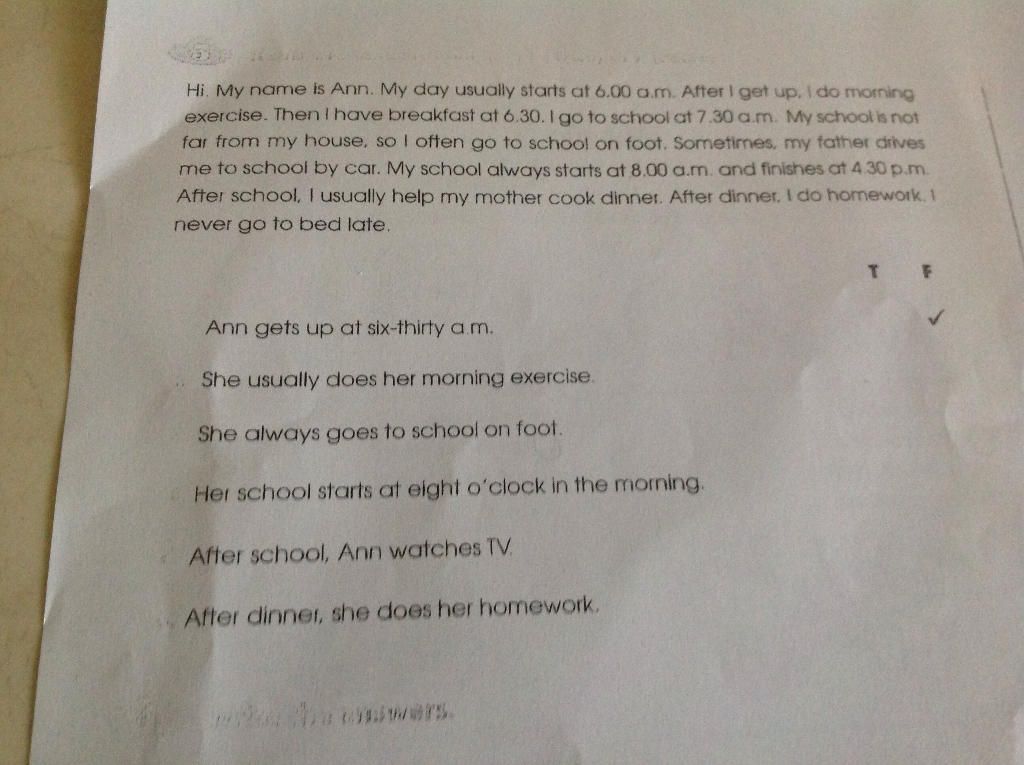 Hi. My name is Ann. My day usually starts at 6.00 a.m. After I get up, I do morning
exercise. Then I have breakfast at 6.30. I go to school at 7.30 a.m. My school is not
far from my house, so I often go to school on foot. Sometimes, my father drives
me to school by car. My school always starts at 8.00 a.m. and finishes at 4.30 p.m.
After school, I usually help my mother cook dinner. After dinner, I do homework. I
never go to bed late.
T F
Ann gets up at six-thirty a.m. ✓
She usually does her morning exercise.
She always goes to school on foot.
Her school starts at eight o'clock in the morning.
After school, Ann watches TV.
After dinner, she does her homework.
the answers.